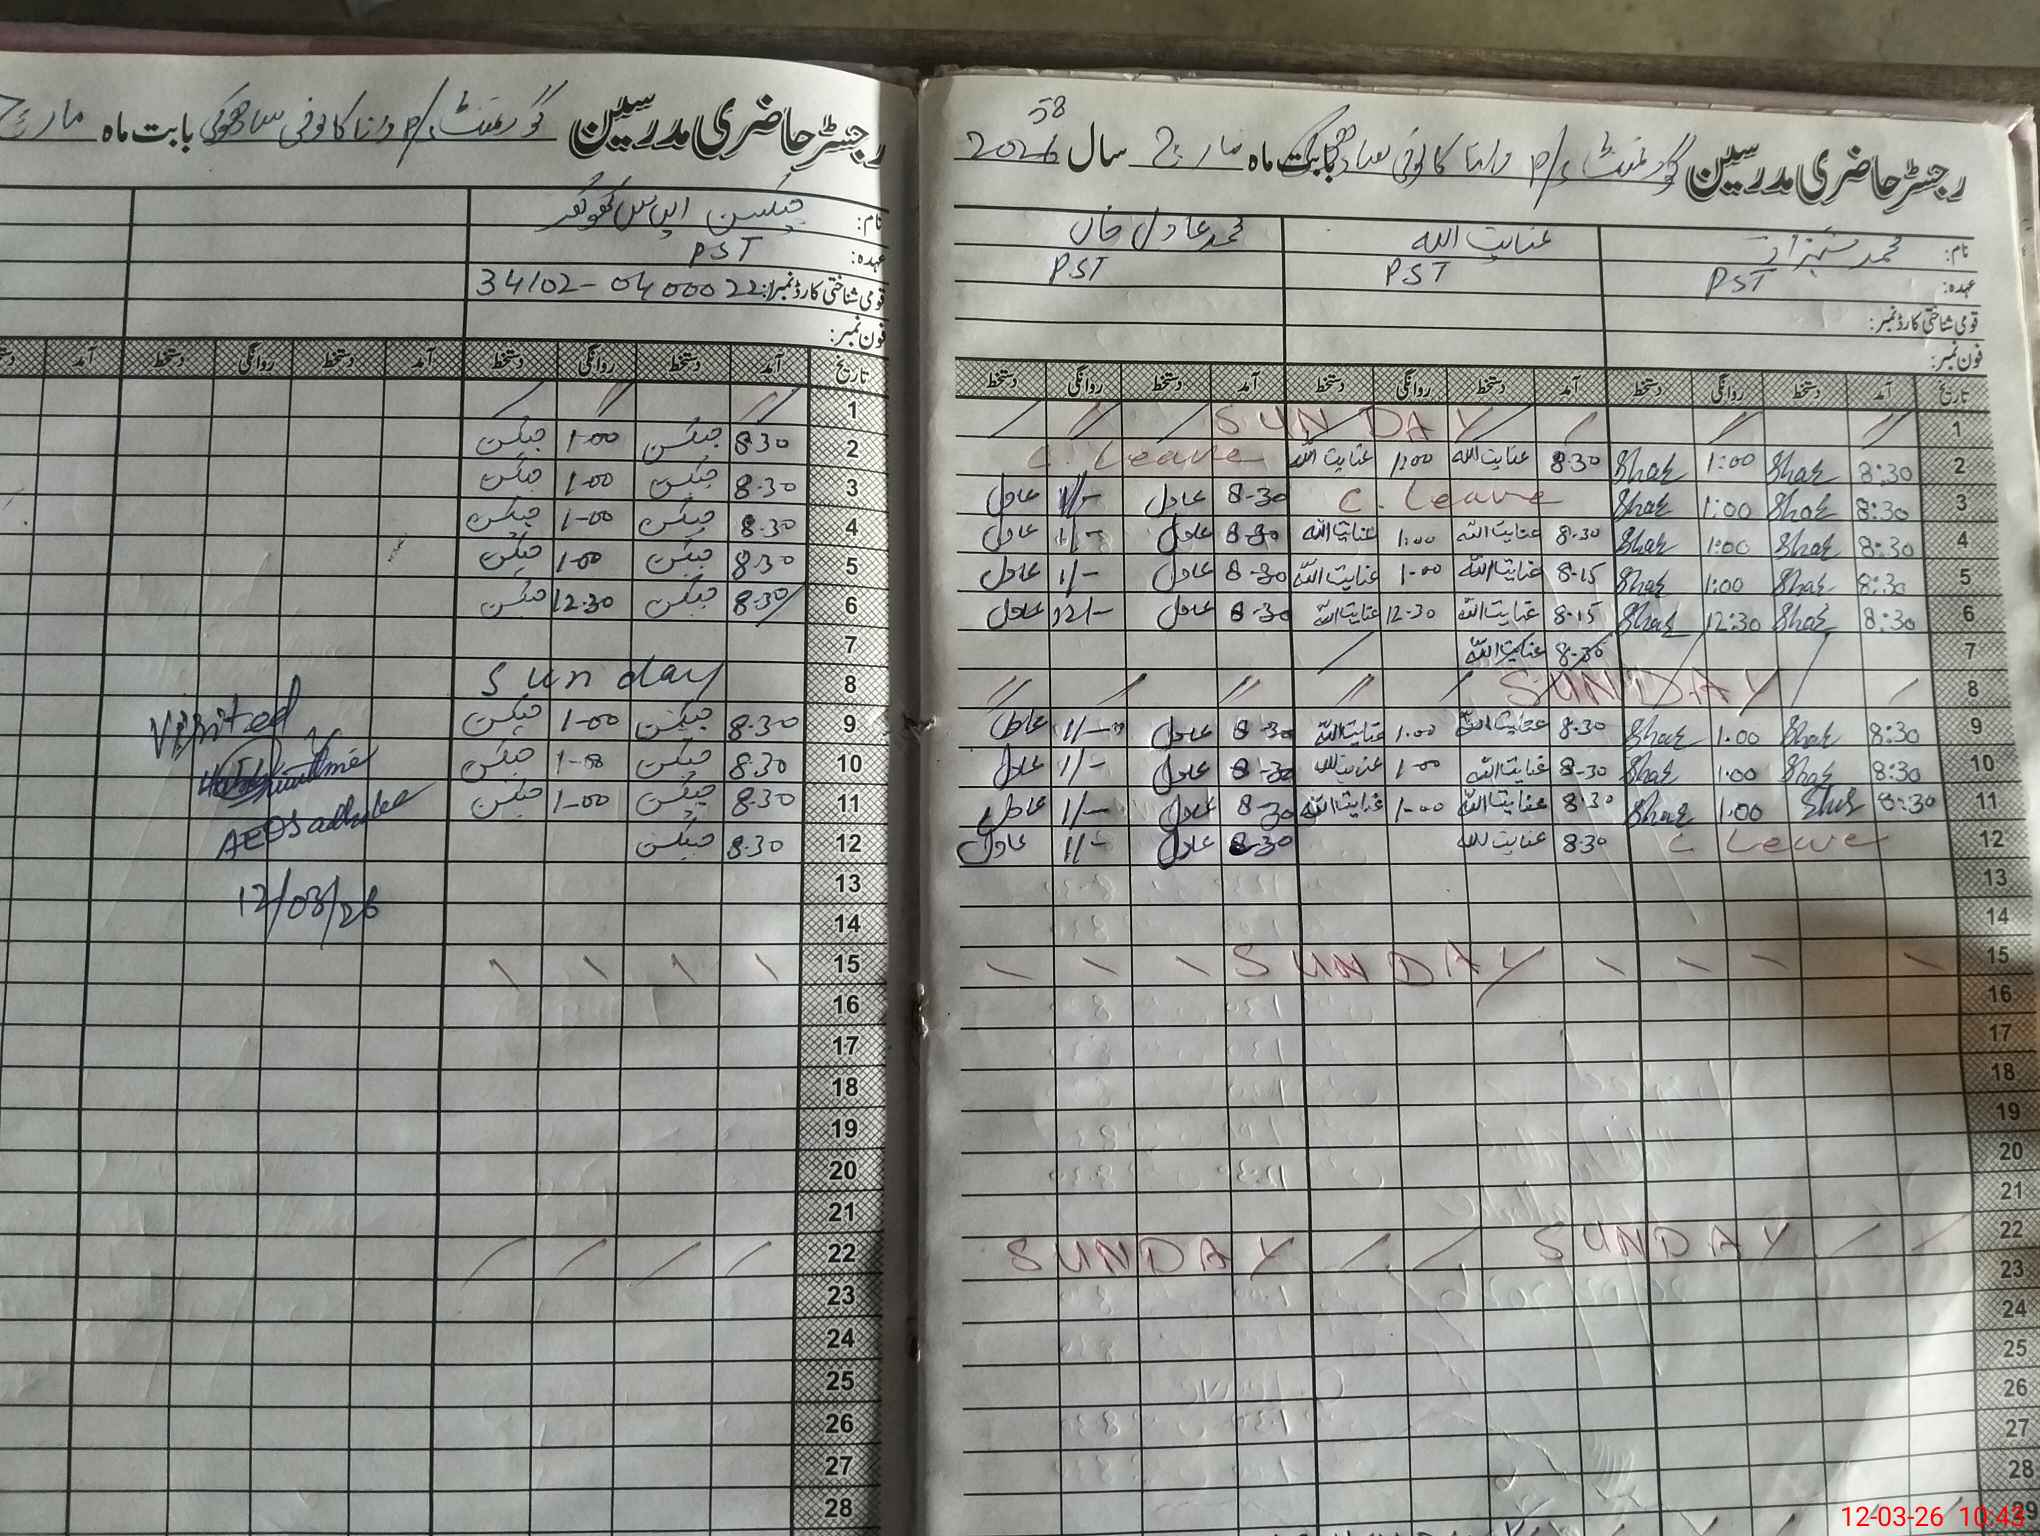 رجسٹر حاضری مدرسین گورنمنٹ P/S رانا کالونی سادھوکی بابت ماہ مارچ
نام: جیکسن ایس کھوکھر
عہدہ: PST
قومی شناختی کارڈ نمبر: 34102-0400022
فون نمبر:
تاریخ آمد دستخط روانگی دستخط آمد دستخط روانگی دستخط آمد
1
2 8.30 جیکسن 1-00 جیکسن
3 8.30 جیکسن 1-00 جیکسن
4 8.30 جیکسن 1-00 جیکسن
5 8.30 جیکسن 1-00 جیکسن
6 8.30 جیکسن 12.30 جیکسن
7
8 Sunday
9 8.30 جیکسن 1-00 جیکسن
10 8.30 جیکسن 1-00 جیکسن
11 8.30 جیکسن 1-00 جیکسن
12 8.30 جیکسن
13
14
15
16
17
18
19
20
21
22
23
24
25
26
27
28
Visited
AEO
12/03/26
58
رجسٹر حاضری مدرسین گورنمنٹ P/S رانا کالونی سادھوکی بابت ماہ مارچ سال 2026
نام: محمد شہزاد عنایت اللہ محمد عادل خاں
عہدہ: PST PST PST
قومی شناختی کارڈ نمبر:
فون نمبر:
تاریخ آمد دستخط روانگی دستخط آمد دستخط روانگی دستخط آمد دستخط روانگی دستخط
1 SUNDAY
2 8:30 1:00 8:30 عنایت اللہ 1:00 عنایت اللہ C. Leave
3 8:30 1:00 C. Leave 8-30 عادل 1/- عادل
4 8:30 1:00 8.30 عنایت اللہ 1:00 عنایت اللہ 8-30 عادل 1/- عادل
5 8:30 1:00 8.15 عنایت اللہ 1-00 عنایت اللہ 8-30 عادل 1/- عادل
6 8:30 12:30 8.15 عنایت اللہ 12-30 عنایت اللہ 8-30 عادل 12/- عادل
7 8.30 عنایت اللہ
8 SUNDAY
9 8:30 1.00 8.30 عنایت اللہ 1.00 عنایت اللہ 8-30 عادل 1/- عادل
10 8:30 1:00 8-30 عنایت اللہ 1-00 عنایت اللہ 8-30 عادل 1/- عادل
11 8:30 1.00 8.30 عنایت اللہ 1-00 عنایت اللہ 8-30 عادل 1/- عادل
12 C Leave 8.30 عنایت اللہ 8-30 عادل 1/- عادل
13
14
15 SUNDAY
16
17
18
19
20
21
22 SUNDAY SUNDAY
23
24
25
26
27
28
29
12-03-26 10:43